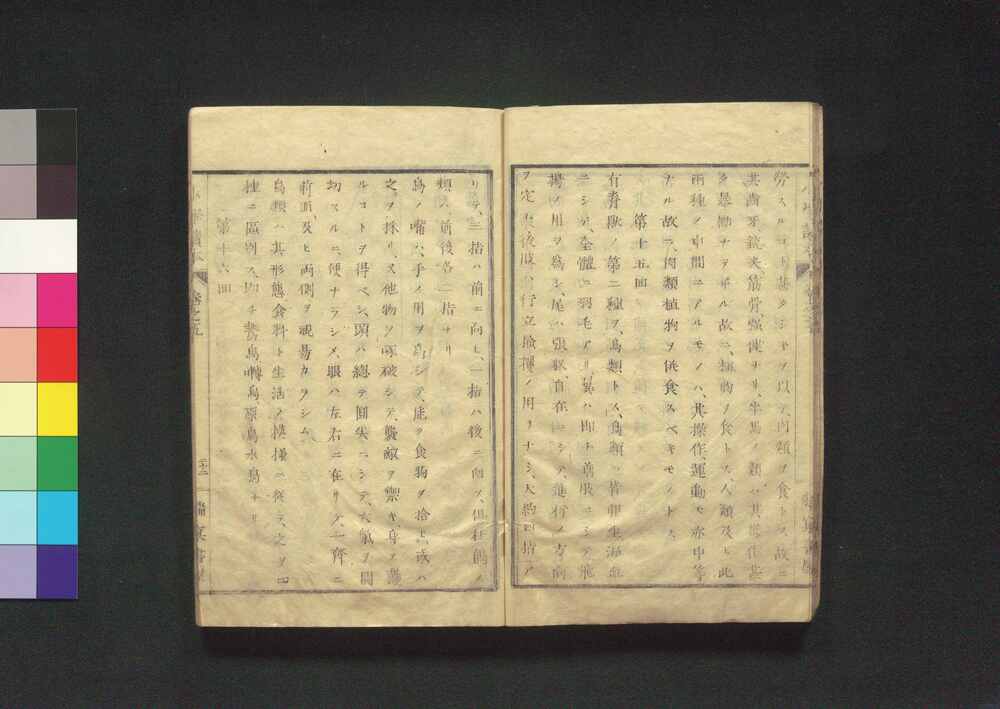 労スルコト甚タシキヲ以テ、肉類ヲ食トス、故ニ
其歯牙、鋭尖、筋骨、強健ナリ、牛馬ノ類ハ、其
暴動ナラザル故ニ、植物ヲ食トス、人類及ヒ此
両種ノ中間ニアルモノハ、其操作、運動モ亦中等
ナル故ニ、肉類植物ヲ供食スベキモノトス
第十五回
有脊獣ノ第二種ヲ、鳥類トス、鳥類ハ皆卵生
ニシテ、全體ニ羽毛アリ、翼ハ即
揚ノ用ヲ為シ、尾ハ張縮自在ニシテ、進行ノ方向
ヲ定メ、後肢ハ行立ノ用ヲナシ、大約四指ア
リテ、三指ハ前ニ向ヒ、一指ハ後ニ向フ、但杜鵑ノ
類ハ、前後各二指ナリ
鳥ノ嘴ハ、手ノ用ヲ為シテ、能ク食物ヲ拾ヒ、或ハ
之ヲ採リ、又他物ヲ啄破シテ、讐敵ヲ禦キ、身ヲ護
ルコトヲ得ベシ、頭ハ總テ圓尖ニシテ、大氣ヲ開
切スルニ便ナラシメ、眼ハ左右ニ在リテ、一齊ニ
前面、及ヒ両側ヲ視易カラシム
鳥類ハ、其形態、食料ト生活ノ模様ニ従テ、之ヲ四
種ニ區別ス、即チ鷙鳥、囀鳥、原鳥、水鳥ナリ
第十六回
巻之五